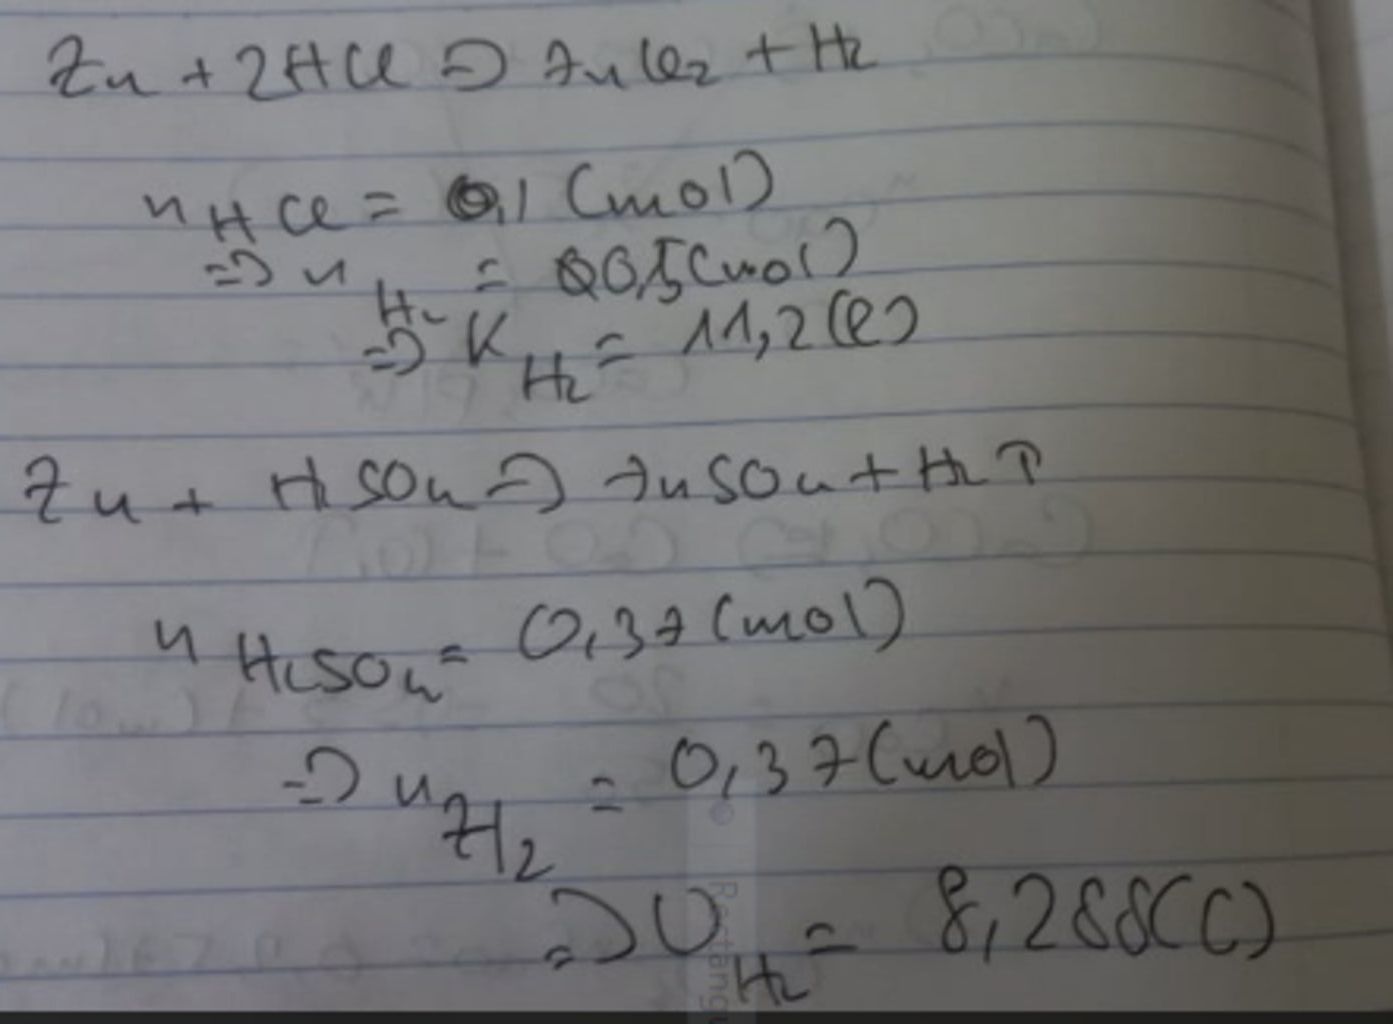 Zn + 2HCl => ZnCl2 + H2
n HCl = 0,1 (mol)
=> n H2 = 00,5 (mol)
=> V H2 = 11,2 (l)
Zn + H2SO4 => ZnSO4 + H2 ↑
n H2SO4 = 0,37 (mol)
=> n H2 = 0,37 (mol)
=> V H2 = 8,288 (l)